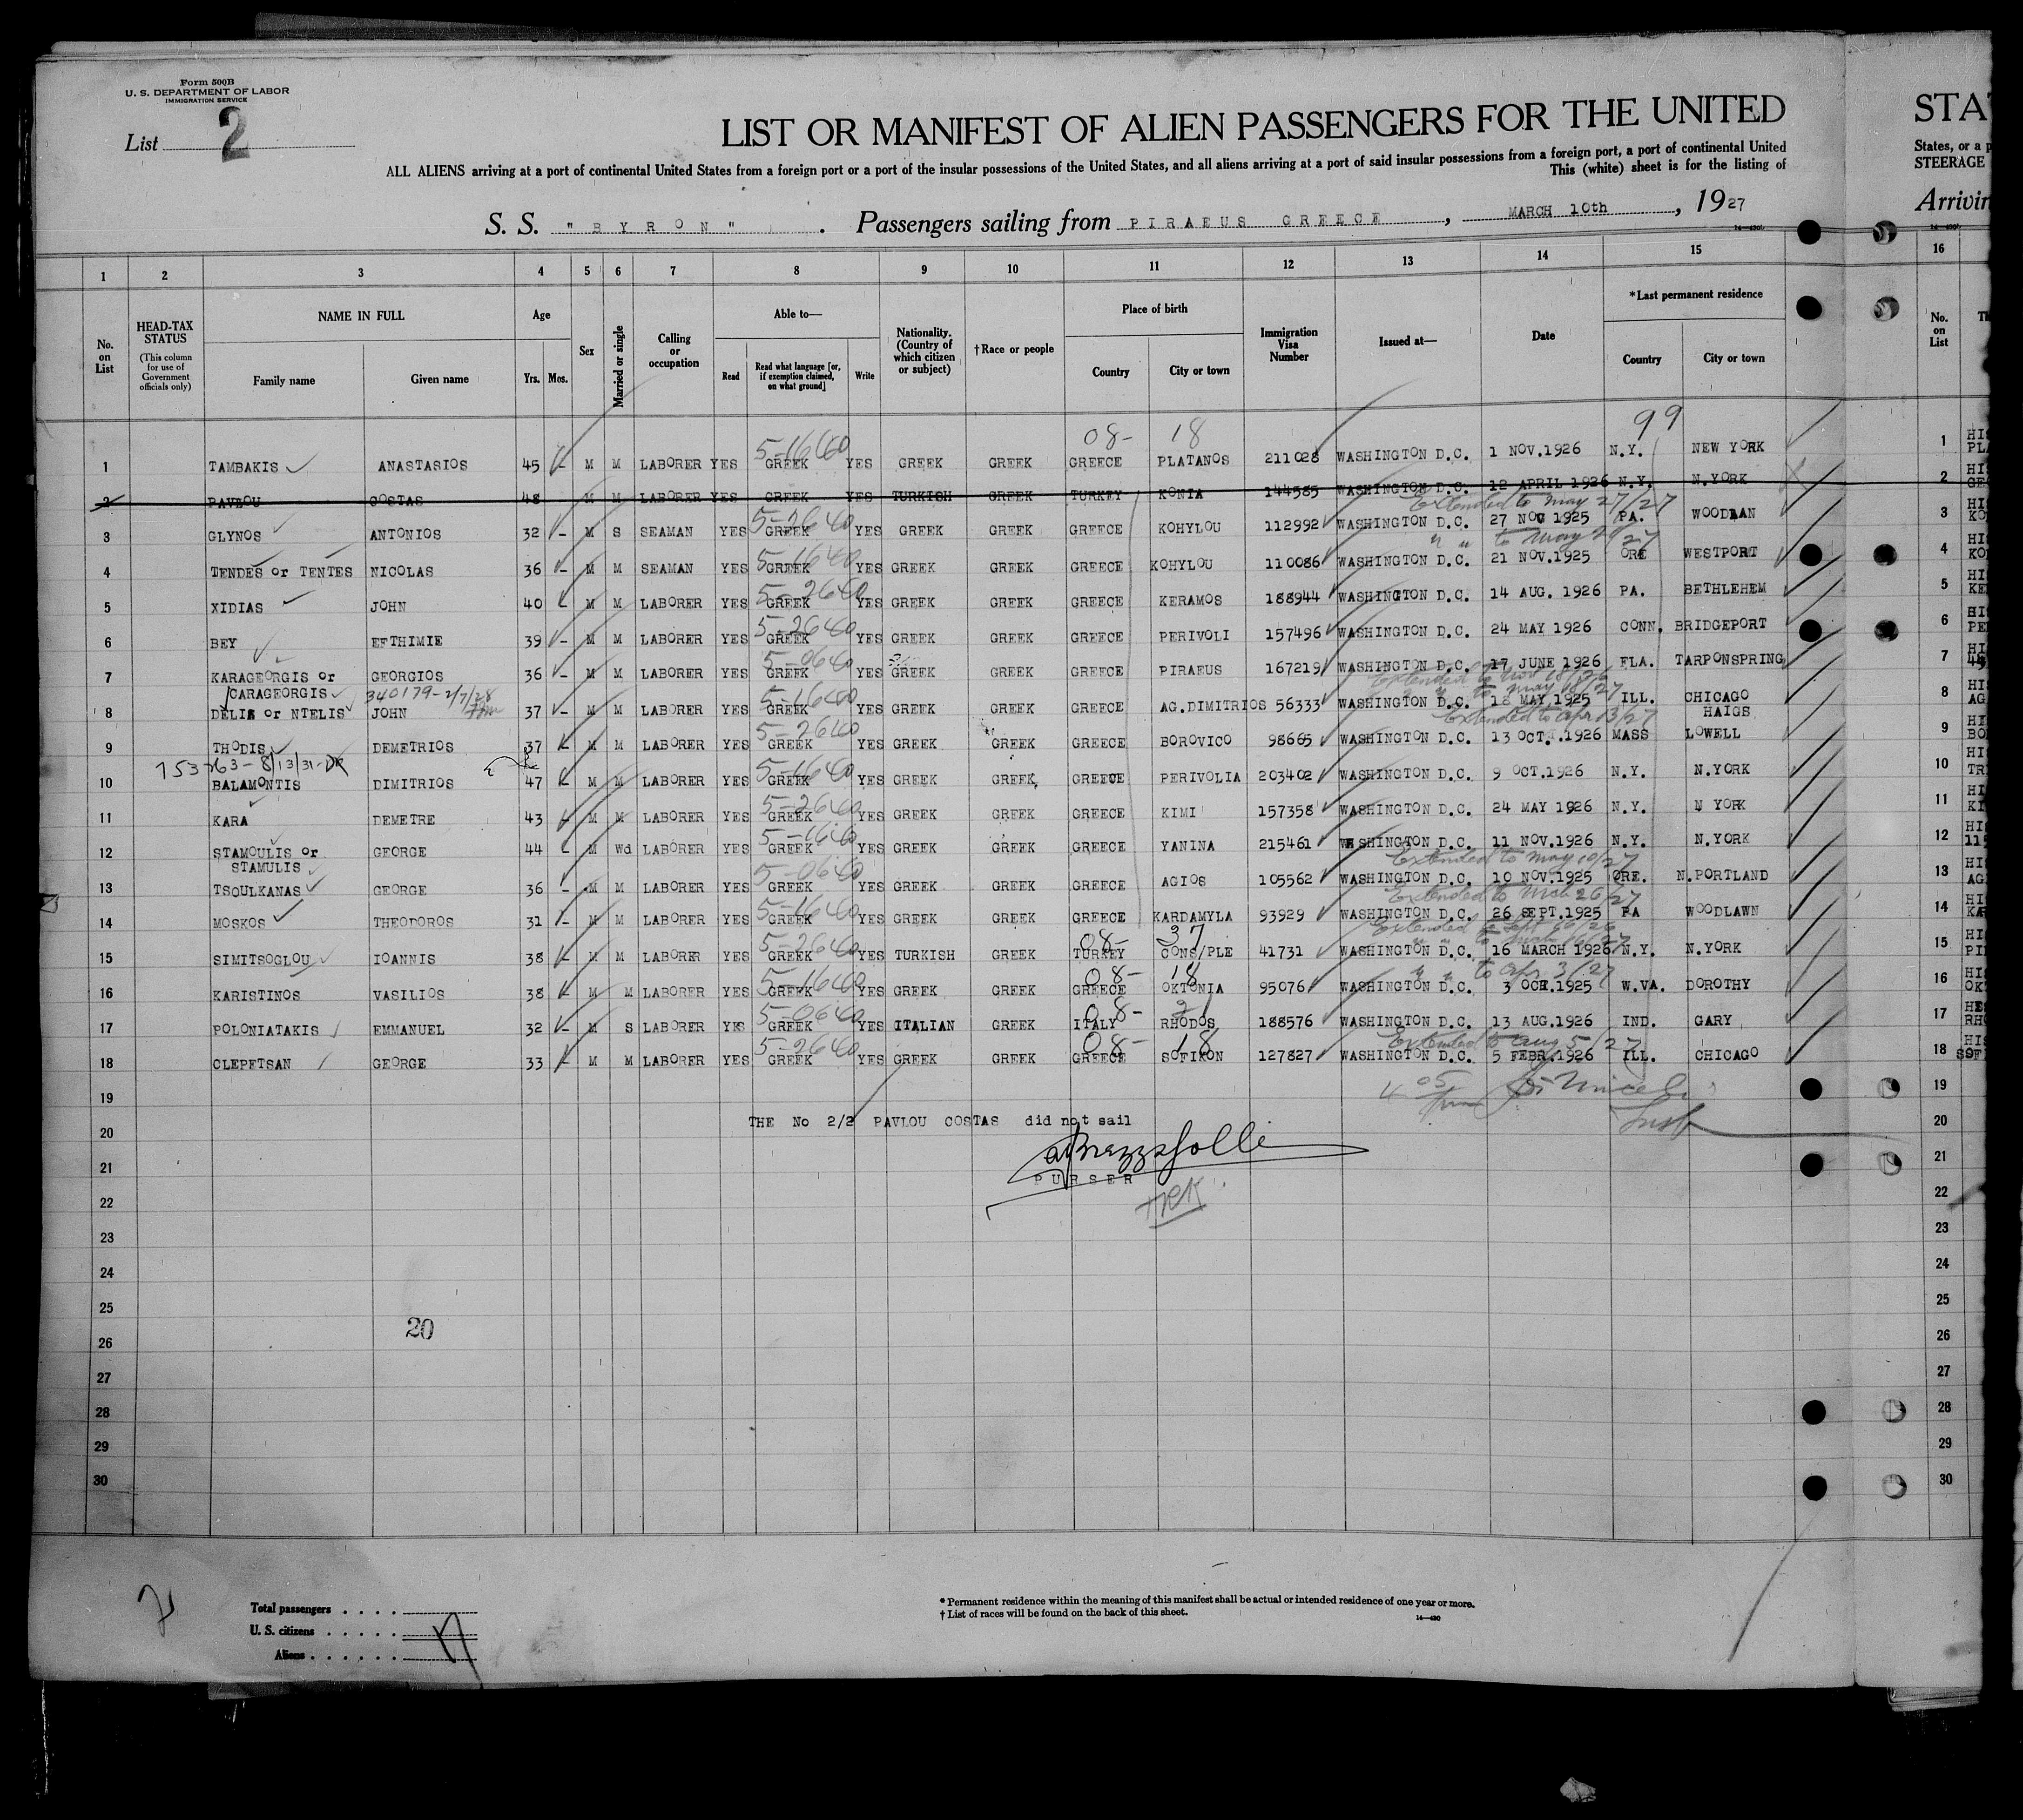 Form 500B
U. S. DEPARTMENT OF LABOR
IMMIGRATION SERVICE
List 2
LIST OR MANIFEST OF ALIEN PASSENGERS FOR THE UNITED
STA
ALL ALIENS arriving at a port of continental United States from a foreign port or a port of the insular possessions of the United States, and all aliens arriving at a port of said insular possessions from a foreign port, a port of continental United
States, or a p
This (white) sheet is for the listing of
STEERAGE
S. S. "BYRON". Passengers sailing from PIRAEUS GREECE, MARCH 10th, 1927
Arrivin
1 2 3 4 5 6 7 8 9 10 11 12 13 14 15 16
No. on List
HEAD-TAX STATUS (This column for use of Government officials only)
NAME IN FULL
Family name Given name
Age
Yrs. Mos.
Sex
Married or single
Calling or occupation
Able to—
Read Read what language [or, if exemption claimed, on what ground] Write
Nationality. (Country of which citizen or subject)
†Race or people
Place of birth
Country City or town
Immigration Visa Number
Issued at—
Date
*Last permanent residence
Country City or town
No. on List
08- 18 99
1 TAMBAKIS ANASTASIOS 45 - M M LABORER YES GREEK YES GREEK GREEK GREECE PLATANOS 211028 WASHINGTON D.C. 1 NOV.1926 N.Y. NEW YORK 1
2 PAVLOU COSTAS 48 M M LABORER YES GREEK YES TURKISH GREEK TURKEY KONIA 144585 WASHINGTON D.C. 12 APRIL 1926 N.Y. N.YORK 2
Extended to May 27/27
3 GLYNOS ANTONIOS 32 - M S SEAMAN YES GREEK YES GREEK GREEK GREECE KOHYLOU 112992 WASHINGTON D.C. 27 NOV 1925 PA. WOODLAN 3
4 TENDES or TENTES NICOLAS 36 - M M SEAMAN YES GREEK YES GREEK GREEK GREECE KOHYLOU 110086 WASHINGTON D.C. 21 NOV.1925 ORE WESTPORT 4
5 XIDIAS JOHN 40 - M M LABORER YES GREEK YES GREEK GREEK GREECE KERAMOS 188944 WASHINGTON D.C. 14 AUG. 1926 PA. BETHLEHEM 5
6 BEY EFTHIMIE 39 - M M LABORER YES GREEK YES GREEK GREEK GREECE PERIVOLI 157496 WASHINGTON D.C. 24 MAY 1926 CONN. BRIDGEPORT 6
7 KARAGEORGIS or GEORGIOS 36 - M M LABORER YES GREEK YES GREEK GREEK GREECE PIRAEUS 167219 WASHINGTON D.C. 17 JUNE 1926 FLA. TARPONSPRING 7
CARAGEORGIS 340179-2/7/28
Extended to Nov 18/26
" " to May 18/27
8 DELIS or NTELIS JOHN 37 - M M LABORER YES GREEK YES GREEK GREEK GREECE AG.DIMITRIOS 56333 WASHINGTON D.C. 18 MAY 1925 ILL. CHICAGO HAIGS 8
Extended to Apr 13/27
9 THODIS DEMETRIOS 37 - M M LABORER YES GREEK YES GREEK GREEK GREECE BOROVICO 98665 WASHINGTON D.C. 13 OCT. 1926 MASS LOWELL 9
753763-8/13/31-
10 BALAMONTIS DIMITRIOS 47 - M M LABORER YES GREEK YES GREEK GREEK GREECE PERIVOLIA 203402 WASHINGTON D.C. 9 OCT.1926 N.Y. N.YORK 10
11 KARA DEMETRE 43 - M M LABORER YES GREEK YES GREEK GREEK GREECE KIMI 157358 WASHINGTON D.C. 24 MAY 1926 N.Y. N YORK 11
12 STAMOULIS or GEORGE 44 - M Wd LABORER YES GREEK YES GREEK GREEK GREECE YANINA 215461 WASHINGTON D.C. 11 NOV.1926 N.Y. N.YORK 12
STAMULIS
Extended to May 10/27
13 TSOULKANAS GEORGE 36 - M M LABORER YES GREEK YES GREEK GREEK GREECE AGIOS 105562 WASHINGTON D.C. 10 NOV.1925 ORE. N.PORTLAND 13
Extended to Mch 26/27
14 MOSKOS THEODOROS 31 - M M LABORER YES GREEK YES GREEK GREEK GREECE KARDAMYLA 93929 WASHINGTON D.C. 26 SEPT.1925 PA WOODLAWN 14
08- 37
15 SIMITSOGLOU IOANNIS 38 - M M LABORER YES GREEK YES TURKISH GREEK TURKEY CONS/PLE 41731 WASHINGTON D.C. 16 MARCH 1926 N.Y. N.YORK 15
08- 18 " " to Apr 3/27
16 KARISTINOS VASILIOS 38 - M M LABORER YES GREEK YES GREEK GREEK GREECE OKTONIA 95076 WASHINGTON D.C. 3 OCT.1925 W.VA. DOROTHY 16
08- 21
17 POLONIATAKIS EMMANUEL 32 - M S LABORER YES GREEK YES ITALIAN GREEK ITALY RHODOS 188576 WASHINGTON D.C. 13 AUG.1926 IND. GARY 17
08- 18 Extended to Aug 5/27
18 CLEPETSAN GEORGE 33 - M M LABORER YES GREEK YES GREEK GREEK GREECE SOFIKON 127827 WASHINGTON D.C. 5 FEBR.1926 ILL. CHICAGO 18
19 19
THE No 2/2 PAVLOU COSTAS did not sail
20 20
21 21
PURSER
22 22
23 23
24 24
25 25
20
26 26
27 27
28 28
29 29
30 30
Total passengers
U. S. citizens
Aliens
* Permanent residence within the meaning of this manifest shall be actual or intended residence of one year or more.
† List of races will be found on the back of this sheet.
14—430